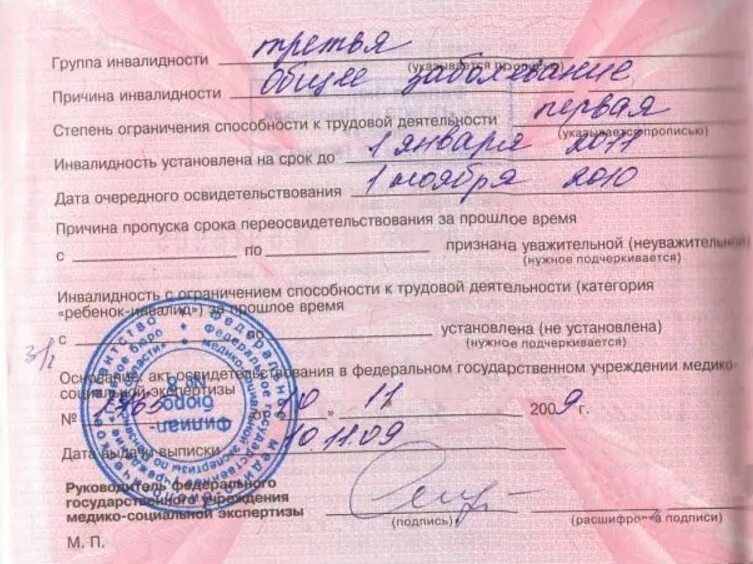 Группа инвалидности третья
(указывается прописью)
Причина инвалидности Общее заболевание
Степень ограничения способности к трудовой деятельности первая
(указывается прописью)
Инвалидность установлена на срок до 1 января 2011
Дата очередного освидетельствования 1 ноября 2010
Причина пропуска срока переосвидетельствования за прошлое время
с по признана уважительной (неуважительной)
(нужное подчеркивается)
Инвалидность с ограничением способности к трудовой деятельности (категория
«ребенок-инвалид») за прошлое время
с по установлена (не установлена)
(нужное подчеркивается)
Основание: акт освидетельствования в федеральном государственном учреждении медико-
социальной экспертизы
№ от 10 » 11 2009 г.
Дата выдачи выписки 10.11.09
Руководитель федерального
государственного учреждения
медико-социальной экспертизы
(подпись) (расшифровка подписи)
М. П.
филиал
бюро
№ 8